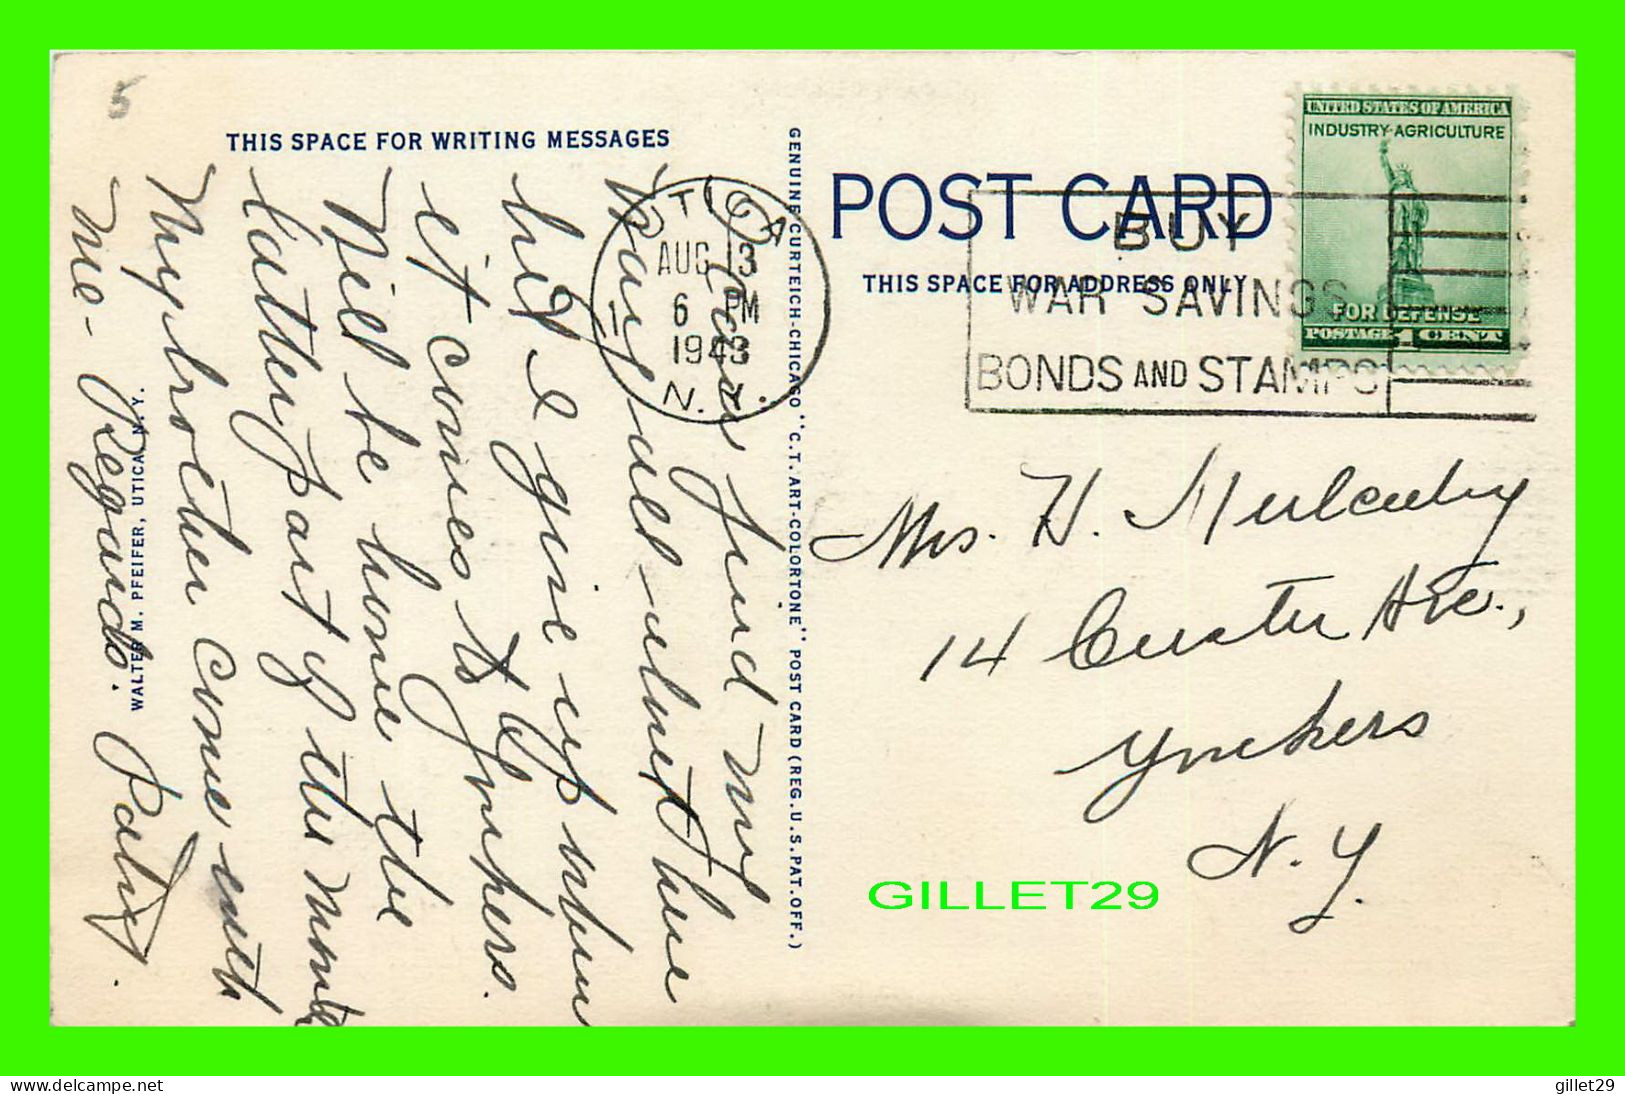 5
THIS SPACE FOR WRITING MESSAGES
I can find my
way all about here
but I give up when
it comes to Yonkers.
Will be home the
latter part of the month
My brother came with
me - Regards. Patsy.
WALTER M. PFEIFER, UTICA, N. Y.
GENUINE CURTEICH-CHICAGO "C.T. ART-COLORTONE" POST CARD (REG. U.S. PAT. OFF.)
UTICA
AUG 13
6 PM
1943
N. Y.
1
POST CARD
THIS SPACE FOR ADDRESS ONLY
BUY
WAR SAVINGS
BONDS AND STAMPS
UNITED STATES OF AMERICA
INDUSTRY-AGRICULTURE
FOR DEFENSE
POSTAGE 1 CENT
Mrs. H. Mulcahy
14 Custer Ave.,
Yonkers
N. Y.
GILLET29
delcampe.net
gillet29